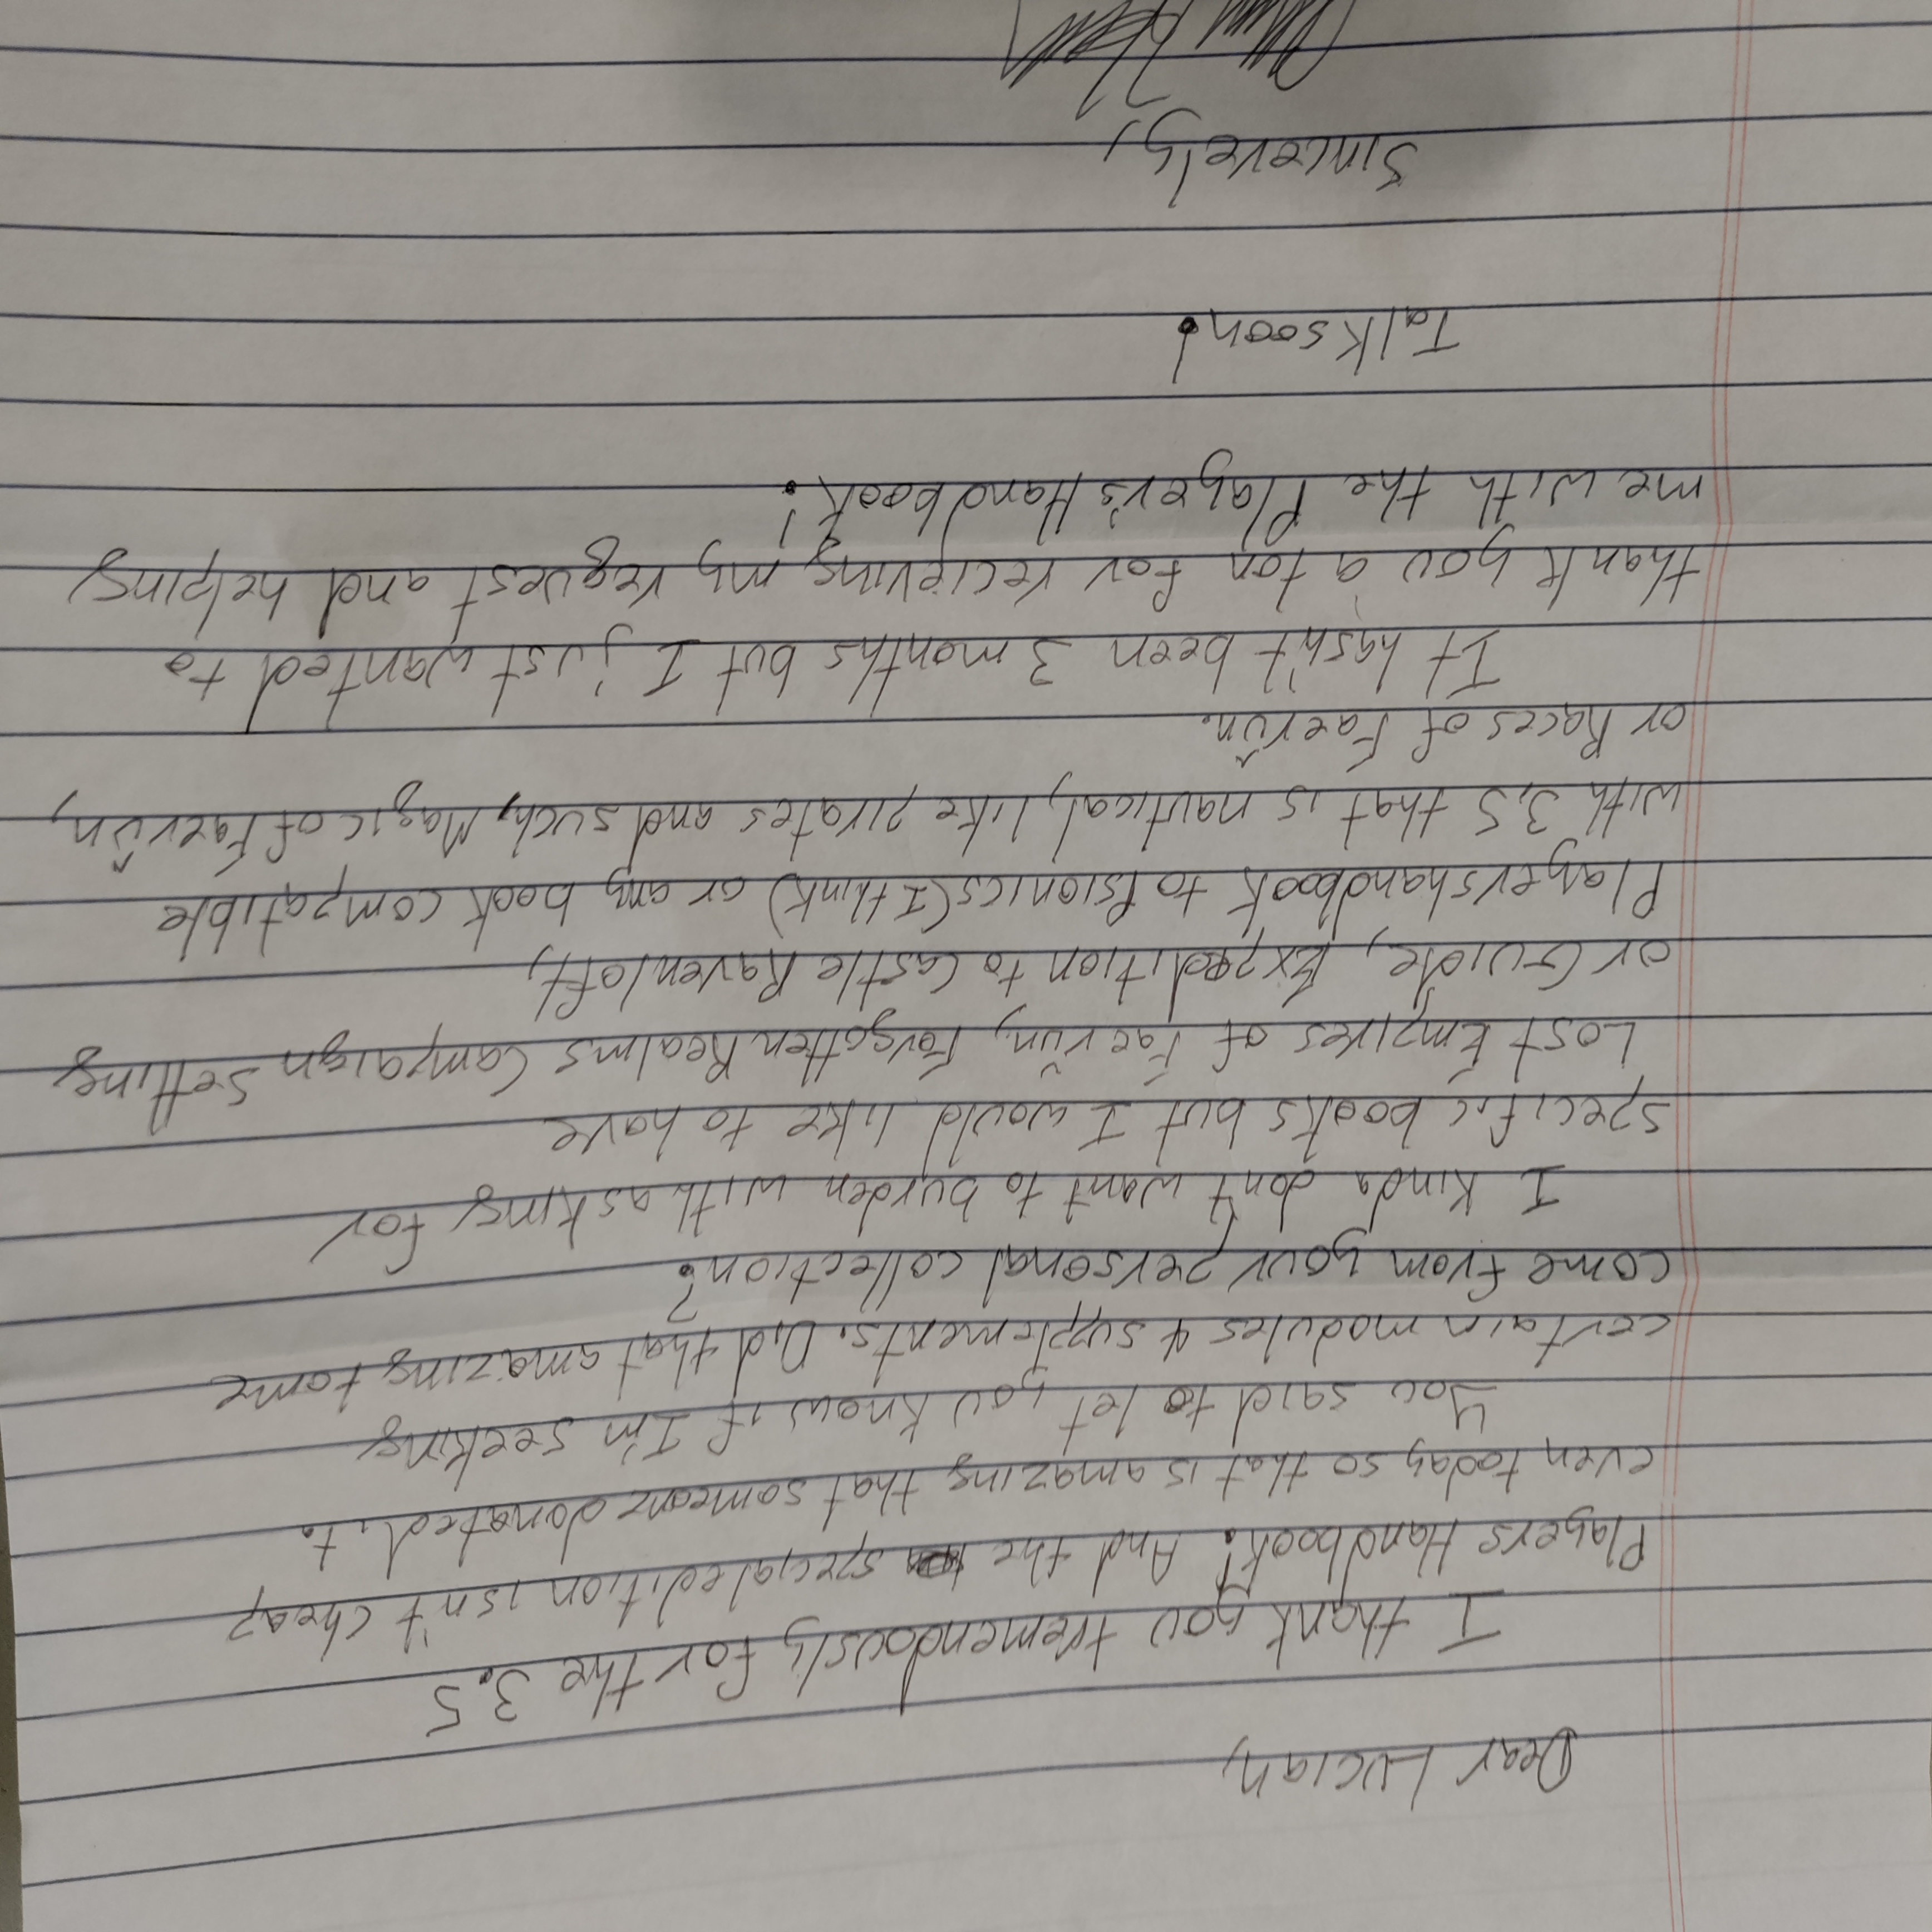 Dear Lucian,
I thank you tremendously for the 3.5
Players Handbook! And the special edition isn't cheap
even today so that is amazing that someone donated it.
You said to let you know if I'm seeking
certain modules & supplements. Did that amazing tome
come from your personal collection?
I kinda don't want to burden with asking for
specific books but I would like to have
Lost Empires of Faerŭn, Forgotten Realms Campaign Setting
or Guide, Expedition to Castle Ravenloft,
Players handbook to Psionics (I think) or any book compatible
with 3.5 that is nautical, like pirates and such, Magic of Faerûn,
or Races of Faerûn.
It hasn't been 3 months but I just wanted to
thank you a ton for recieving my request and helping
me with the Player's Handbook!
Talk soon!
Sincerely,